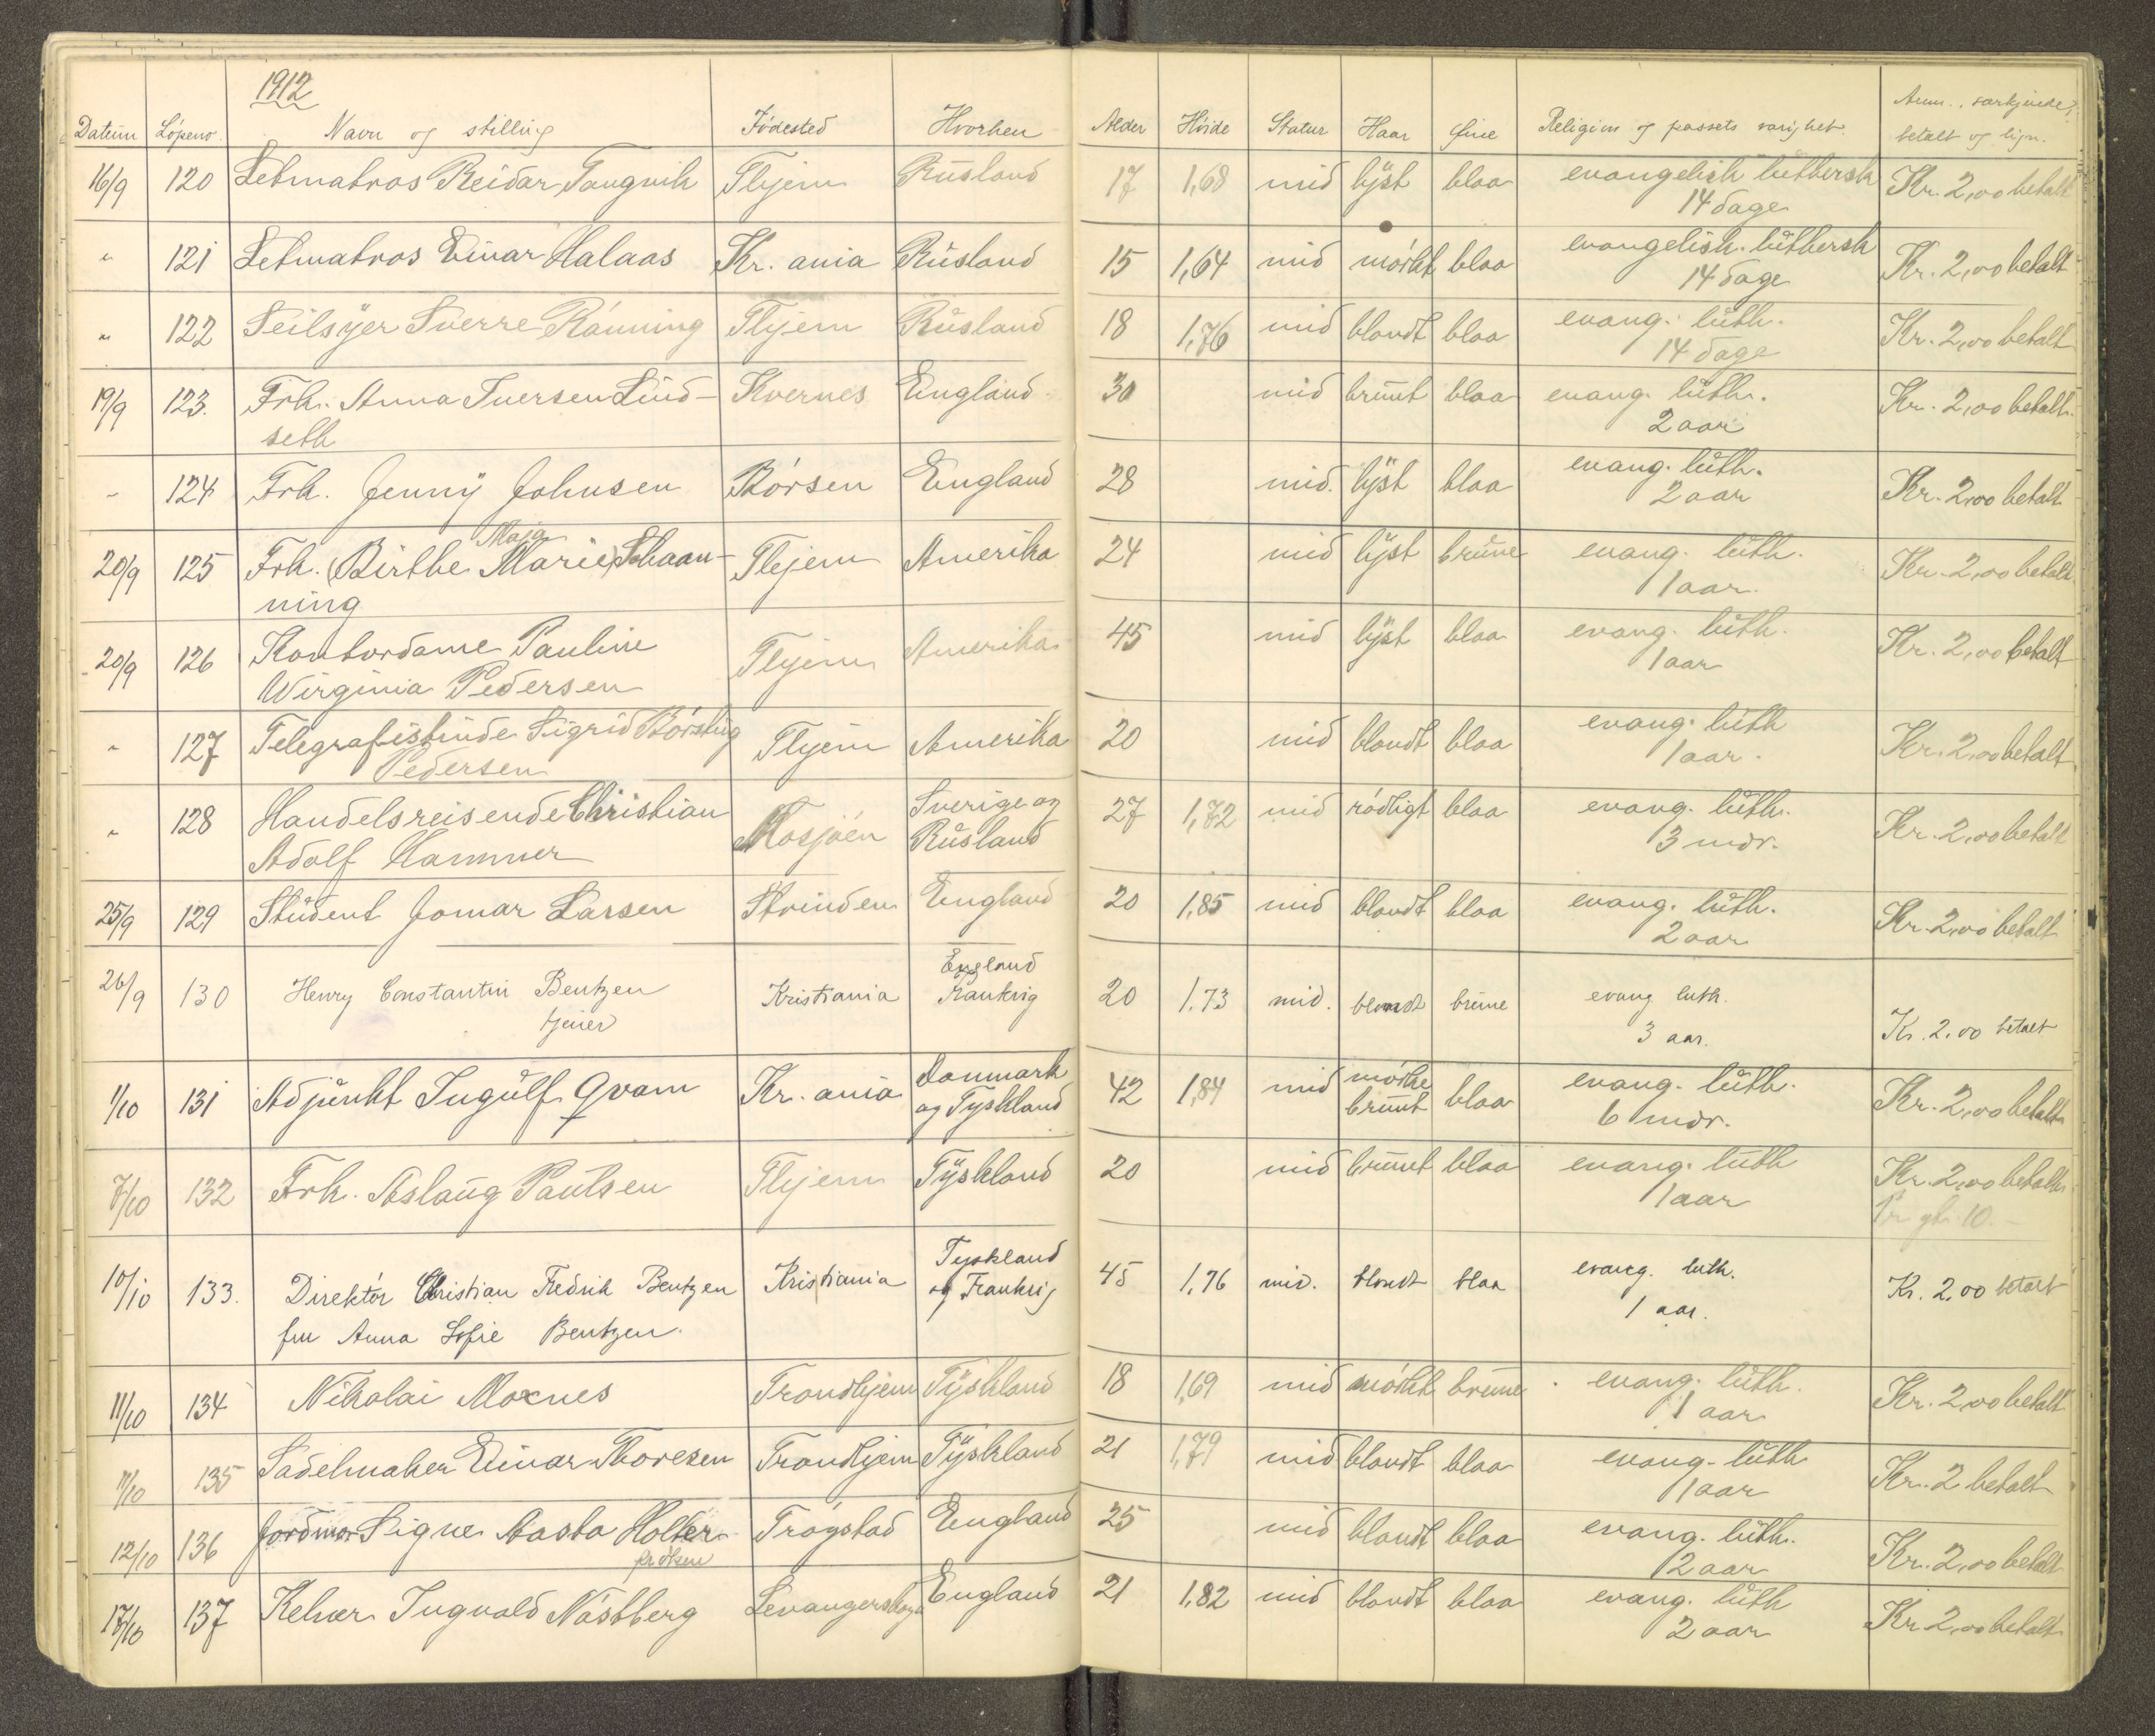 1912
Datum Löpeno. Navn og stilling Födested Hvorhen Alder Höide Statur Haar Öine Religion og passets varighet. Anm., særkjende, betalt og lign.
16/9 120 Letmatros Reidar Tangvik Thjem Rusland 17 1,68 mid lyst blaa evangelisk luthersk Kr. 2,00 betalt
14 dage
" 121 Letmatros Einar Halaas Kr. ania Rusland 15 1,64 mid mörkt blaa evangelisk. luthersk Kr. 2,00 betalt
14 dage
" 122 Seilsyer Sverre Rönning Thjem Rusland 18 1,76 mid blondt blaa evang. luth. Kr. 2,00 betalt
14 dage
19/9 123. Frk. Anna Iversen Lind- Kvernes England 30 mid brunt blaa evang. luth. Kr. 2,00 betalt
seth 2 aar
" 124 Frk. Jenny Johnsen Börsen England 28 mid. lyst blaa evang. luth. Kr. 2,00 betalt
2 aar
Maja
20/9 125 Frk. (Birthe Marie) Schaan- Thjem Amerika 24 mid lyst brune evang. luth. Kr. 2,00 betalt
ning 1 aar.
20/9 126 Kontordame Pauline Thjem Amerika 45 mid lyst blaa evang. luth. Kr. 2,00 betalt
Wirginia Pedersen 1 aar
" 127 Telegrafistinde Sigrid Börsting Thjem Amerika 20 mid blondt blaa evang. luth Kr. 2,00 betalt
Pedersen 1 aar.
" 128 Handelsreisende Christian Mosjöen Sverige og 27 1,72 mid rödligt blaa evang. luth. Kr. 2,00 betalt
Adolf Hammer Rusland 3 mdr.
25/9 129 Student Jomar Larsen Strinden England 20 1,85 mid blondt blaa evang. luth. Kr. 2,00 betalt
2 aar
England
26/9 130 Henry Constantin Bentzen Kristiania Frankrig 20 1.73 mid. blondt brune evang luth.
tjener 3 aar. Kr. 2.00 betalt
1/10 131 Adjunkt Ingulf Qvam Kr. ania Danmark 42 1,84 mid mörke blaa evang. luth. Kr. 2,00 betalt
og Tyskland brunt 6 mdr.
7/10 132 Frk. Aslaug Paulsen Thjem Tyskland 20 mid brunt blaa evang. luth Kr. 2,00 betalt
1 aar 10.-
10/10 133. Direktör Christian Fredrik Bentzen Kristiania Tyskland 45 1,76 mid. blondt blaa evang. luth. Kr. 2,00 betalt
fru Anna Sofie Bentzen. og Frankrig 1 aar.
11/10 134 Nikolai Moxnes Trondhjem Tyskland 18 1,69 mid mörkt brune evang. luth. Kr. 2,00 betalt
1 aar
11/10 135 Sadelmaker Einar Thoresen Trondhjem Tyskland 21 1,79 mid blondt blaa evang. luth Kr. 2 betalt
1 aar
12/10 136 Jordmor Signe Aasta Holter Trögstad England 25 mid blondt blaa evang. luth. Kr. 2,00 betalt
fröken 2 aar
17/10 137 Kelner Ingvald Nöstberg England 21 1.82 mid blondt blaa evang. luth Kr 2,00 betalt
2 aar